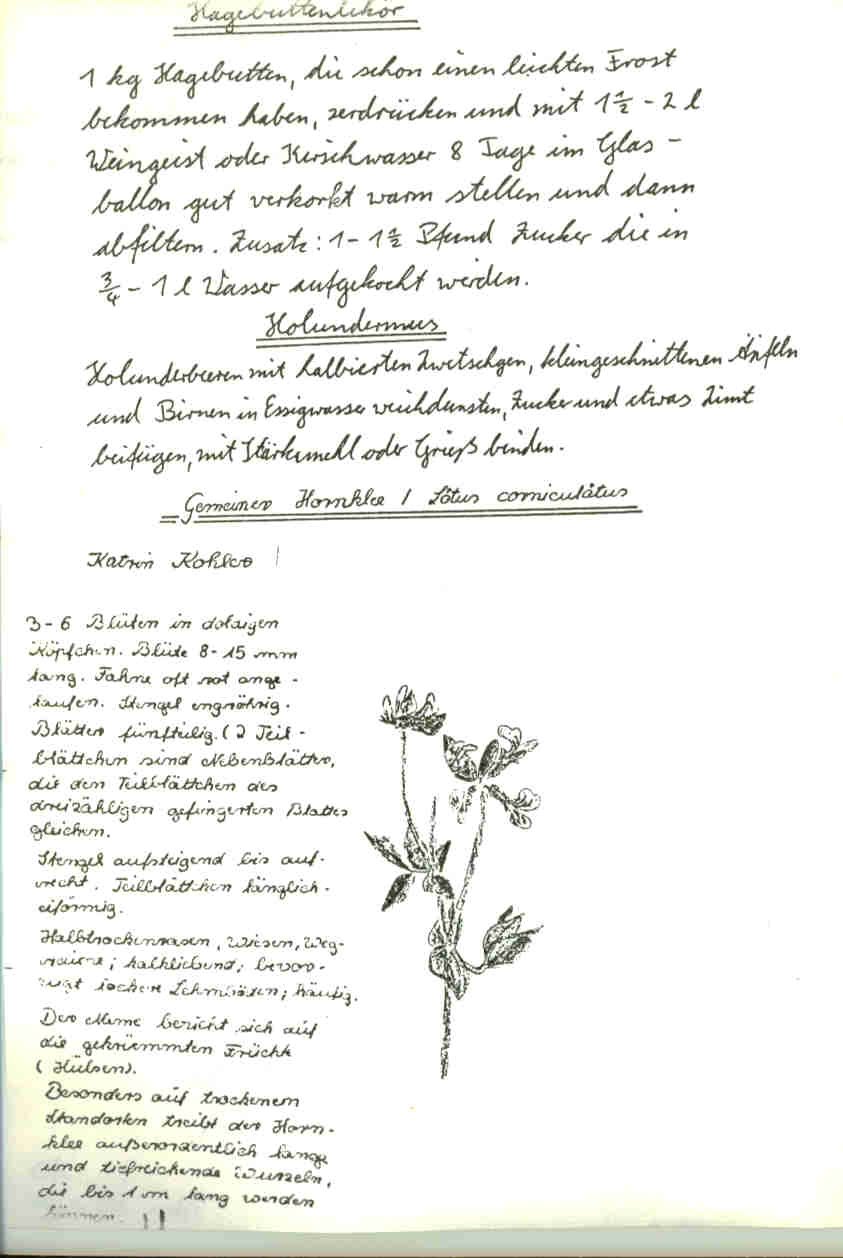 Hagebuttenlikör
1 kg Hagebutten, die schon einen leichten Frost
bekommen haben, zerdrücken und mit 1½ - 2 l
Weingeist oder Kirschwasser 8 Tage im Glas -
ballon gut verkorkt warm stellen und dann
abfiltern. Zusatz: 1 - 1½ Pfund Zucker die in
¾ - 1 l Wasser aufgekocht werden.
Holundermus
Holunderbeeren mit halbierten Zwetschgen, kleingeschnittenen Äpfeln
und Birnen in Essigwasser weichdünsten, Zucker und etwas Zimt
beifügen, mit Stärkemehl oder Grieß binden.
Gemeiner Hornklee / Lotus corniculatus
Katrin Kohler
3-6 Blüten in doldigen
Köpfchen. Blüte 8-15 mm
lang. Fahne oft rot ange -
laufen. Stengel engröhrig.
Blätter fünfteilig. (2 Teil -
blättchen sind Nebenblätter,
die den Teilblättchen des
dreizähligen gefingerten Blattes
gleichen.
Stengel aufsteigend bis auf-
recht. Teilblättchen länglich -
eiförmig.
Halbtrockenrasen, Wiesen, Weg-
raine; kalkliebend; bevor-
zugt lockere Lehmböden; häufig.
Der Name bezieht sich auf
die gekrümmten Früchte
(Hülsen).
Besonders auf trockenem
Standorten treibt der Horn-
klee außerordentlich lange
und tiefreichende Wurzeln,
die bis 1 m lang werden
können.